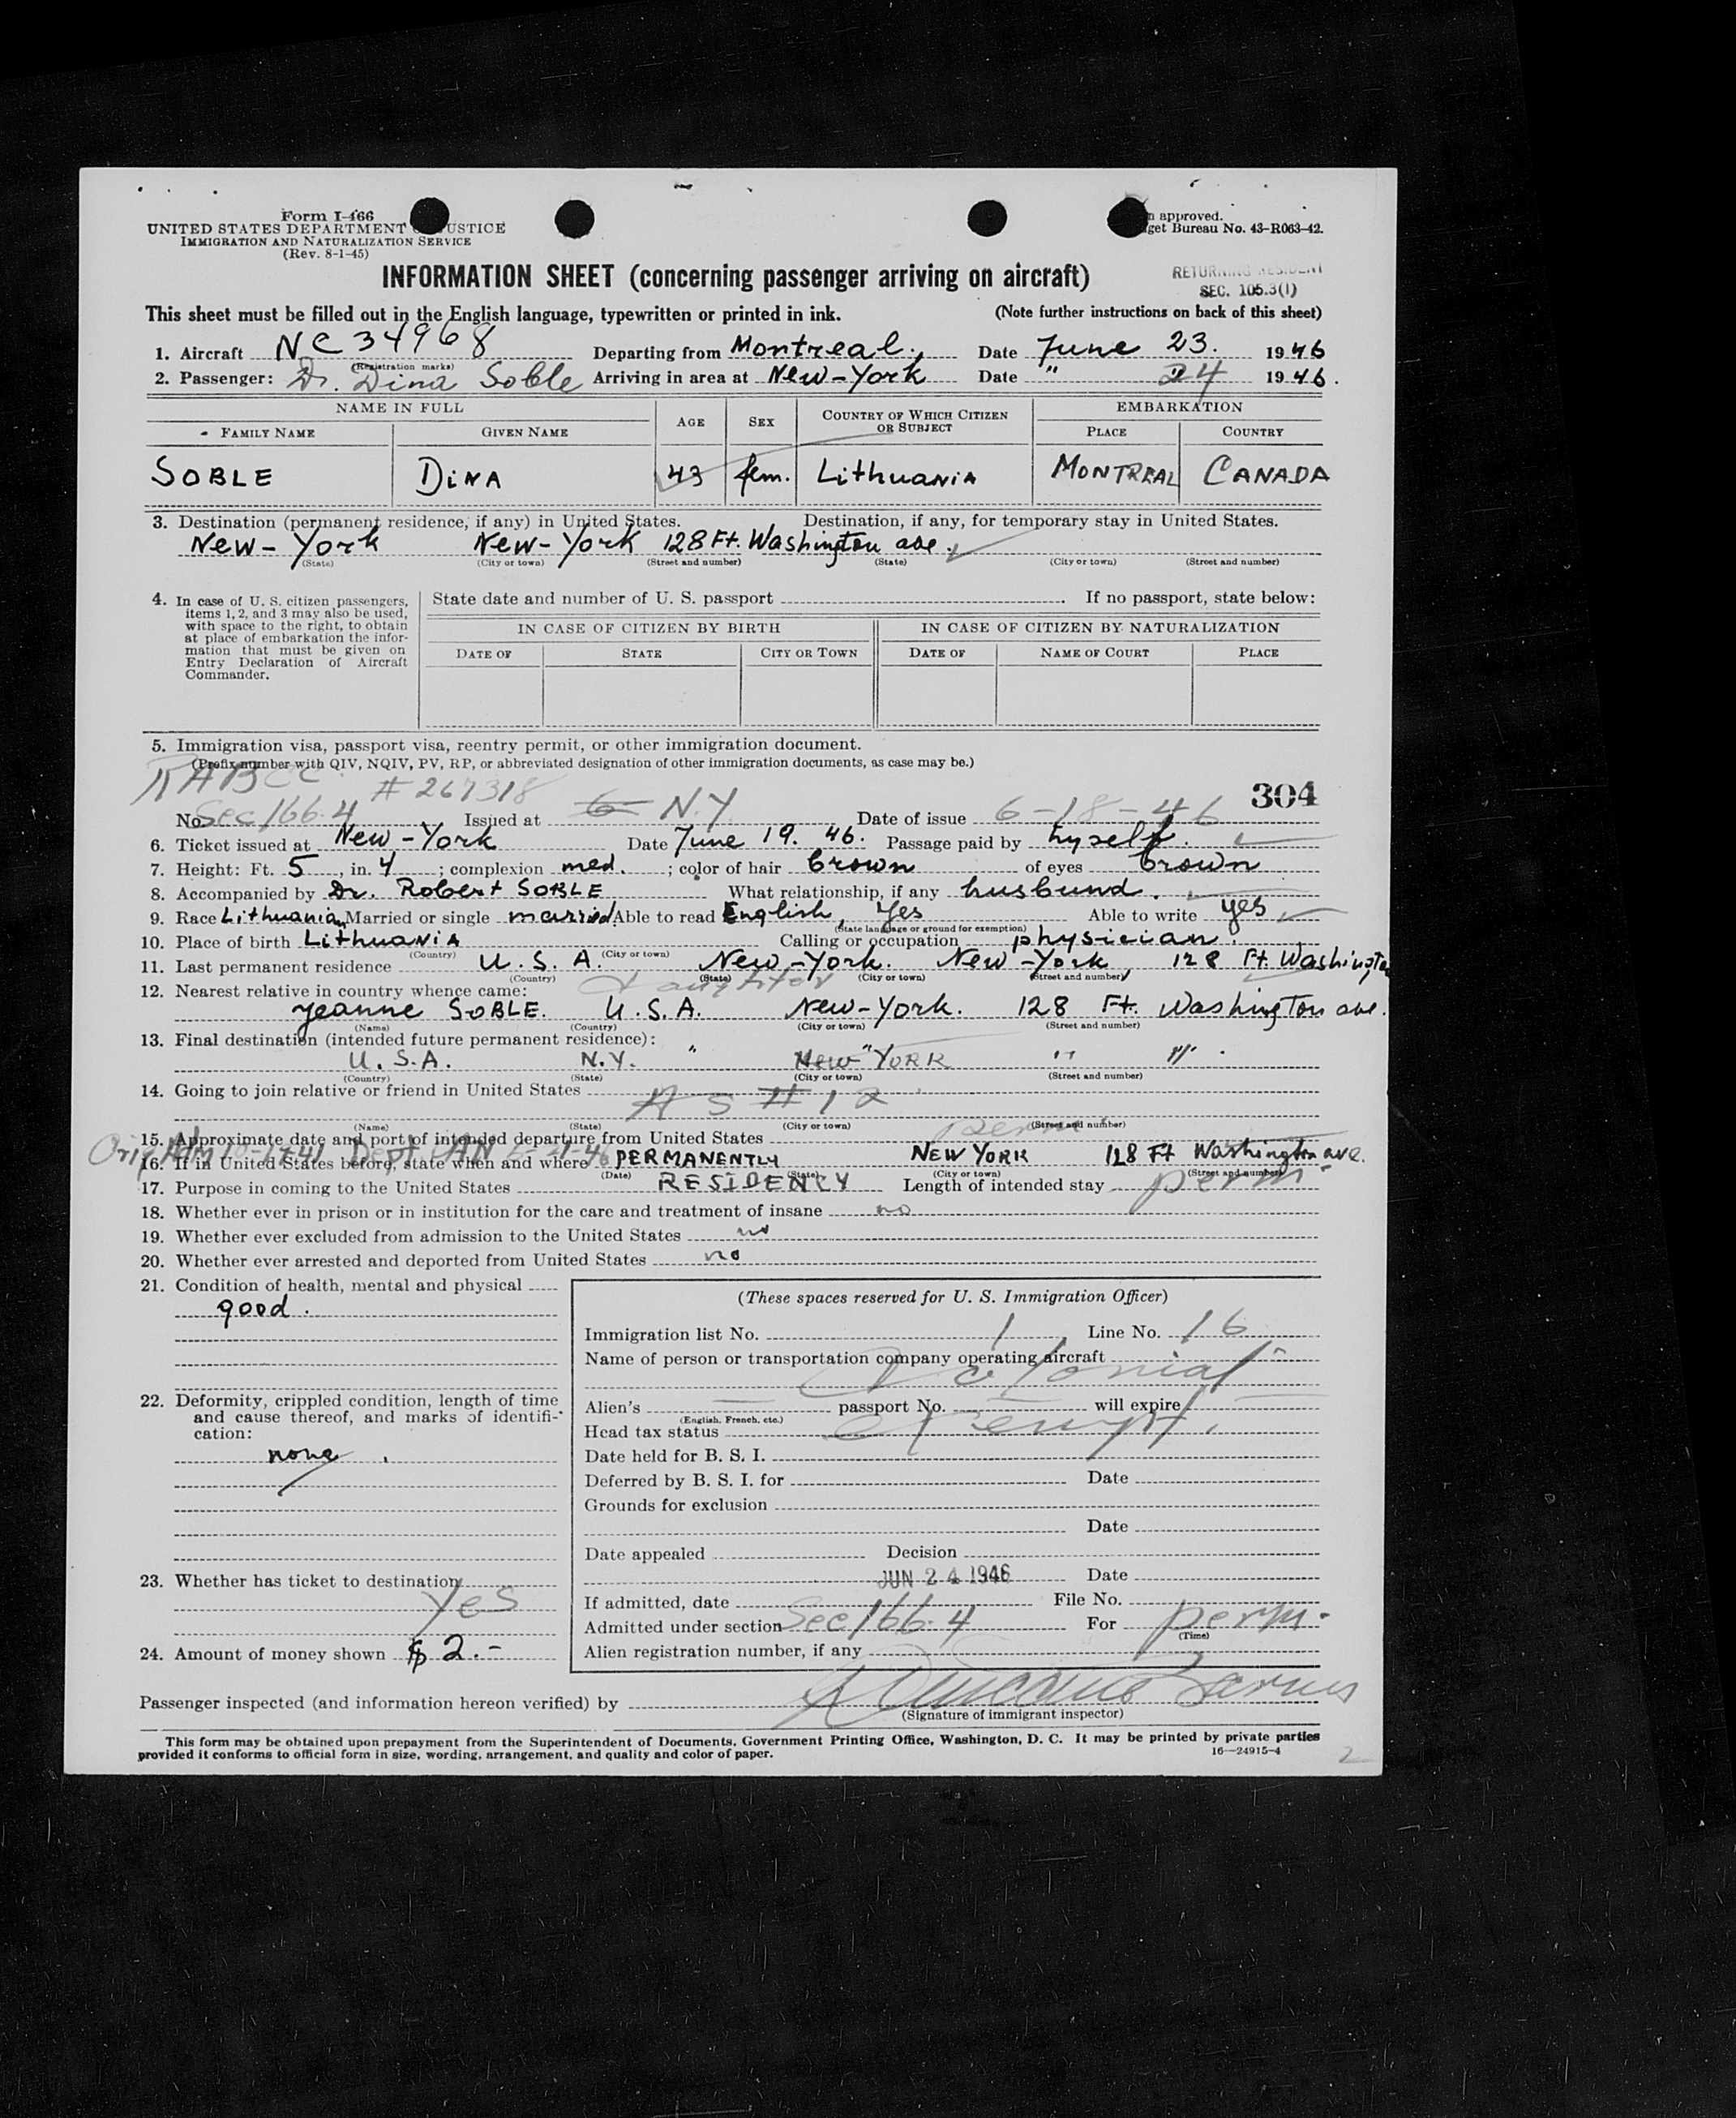 Form I-466
UNITED STATES DEPARTMENT JUSTICE
IMMIGRATION AND NATURALIZATION SERVICE
(Rev. 8-1-45)
n approved.
get Bureau No. 43-R063-42.
INFORMATION SHEET (concerning passenger arriving on aircraft)
RETURNING RESIDENT
SEC. 105.3(1)
This sheet must be filled out in the English language, typewritten or printed in ink. (Note further instructions on back of this sheet)
1. Aircraft NC 34968 Departing from Montreal., Date June 23. 1946
(Registration marks)
2. Passenger: Dr. Dina Soble Arriving in area at New-York Date " 24 1946.
NAME IN FULL AGE SEX COUNTRY OF WHICH CITIZEN OR SUBJECT EMBARKATION
FAMILY NAME GIVEN NAME PLACE COUNTRY
SOBLE DINA 43 fem. Lithuania MONTREAL CANADA
3. Destination (permanent residence, if any) in United States. Destination, if any, for temporary stay in United States.
New-York New-York 128 Ft. Washington ave.
(State) (City or town) (Street and number) (State) (City or town) (Street and number)
4. In case of U. S. citizen passengers, items 1, 2, and 3 may also be used, with space to the right, to obtain at place of embarkation the information that must be given on Entry Declaration of Aircraft Commander.
State date and number of U. S. passport If no passport, state below:
IN CASE OF CITIZEN BY BIRTH IN CASE OF CITIZEN BY NATURALIZATION
DATE OF STATE CITY OR TOWN DATE OF NAME OF COURT PLACE
5. Immigration visa, passport visa, reentry permit, or other immigration document.
(Prefix number with QIV, NQIV, PV, RP, or abbreviated designation of other immigration documents, as case may be.)
RABCC # 267318
304
No. Sec 166.4 Issued at N.Y. Date of issue 6-18-46
6. Ticket issued at New-York Date June 19. 46. Passage paid by
7. Height: Ft. 5, in. 4; complexion med.; color of hair brown of eyes brown
8. Accompanied by Dr. Robert SOBLE What relationship, if any husbund.
9. Race Lithuanian Married or single married Able to read English, Yes Able to write yes
(State language or ground for exemption)
10. Place of birth Lithuania Calling or occupation physician.
(Country) (City or town)
11. Last permanent residence U. S. A. New-York. New-York, 128 Ft. Washington
(Country) (State) (City or town) (Street and number)
12. Nearest relative in country whence came: daughter
Jeanne SOBLE. U.S.A. New-York. 128 Ft. Washington ave.
(Name) (Country) (City or town) (Street and number)
13. Final destination (intended future permanent residence):
U. S.A. N.Y. " New YORK " " .
(Country) (State) (City or town) (Street and number)
14. Going to join relative or friend in United States As # 12
(Name) (State) (City or town) (Street and number)
15. Approximate date and port of intended departure from United States perm
Orig Adm Dept
16. If in United States before, state when and where PERMANENTLY NEW YORK 128 Ft Washington ave.
(Date) (State) (City or town) (Street and number)
17. Purpose in coming to the United States RESIDENCY Length of intended stay perm
18. Whether ever in prison or in institution for the care and treatment of insane no
19. Whether ever excluded from admission to the United States no
20. Whether ever arrested and deported from United States no
21. Condition of health, mental and physical
good.
22. Deformity, crippled condition, length of time and cause thereof, and marks of identification:
none.
23. Whether has ticket to destination
Yes
24. Amount of money shown $ 2.-
(These spaces reserved for U. S. Immigration Officer)
Immigration list No. 1 Line No. 16
Name of person or transportation company operating aircraft
Colonial
Alien's passport No. will expire
(English, French, etc.)
Head tax status exempt.
Date held for B. S. I.
Deferred by B. S. I. for Date
Grounds for exclusion
Date
Date appealed Decision
JUN 24 1946 Date
If admitted, date File No.
Admitted under section Sec 166.4 For perm.
(Time)
Alien registration number, if any
Passenger inspected (and information hereon verified) by
(Signature of immigrant inspector)
This form may be obtained upon prepayment from the Superintendent of Documents, Government Printing Office, Washington, D. C. It may be printed by private parties
provided it conforms to official form in size, wording, arrangement, and quality and color of paper. 16—24915-4
2